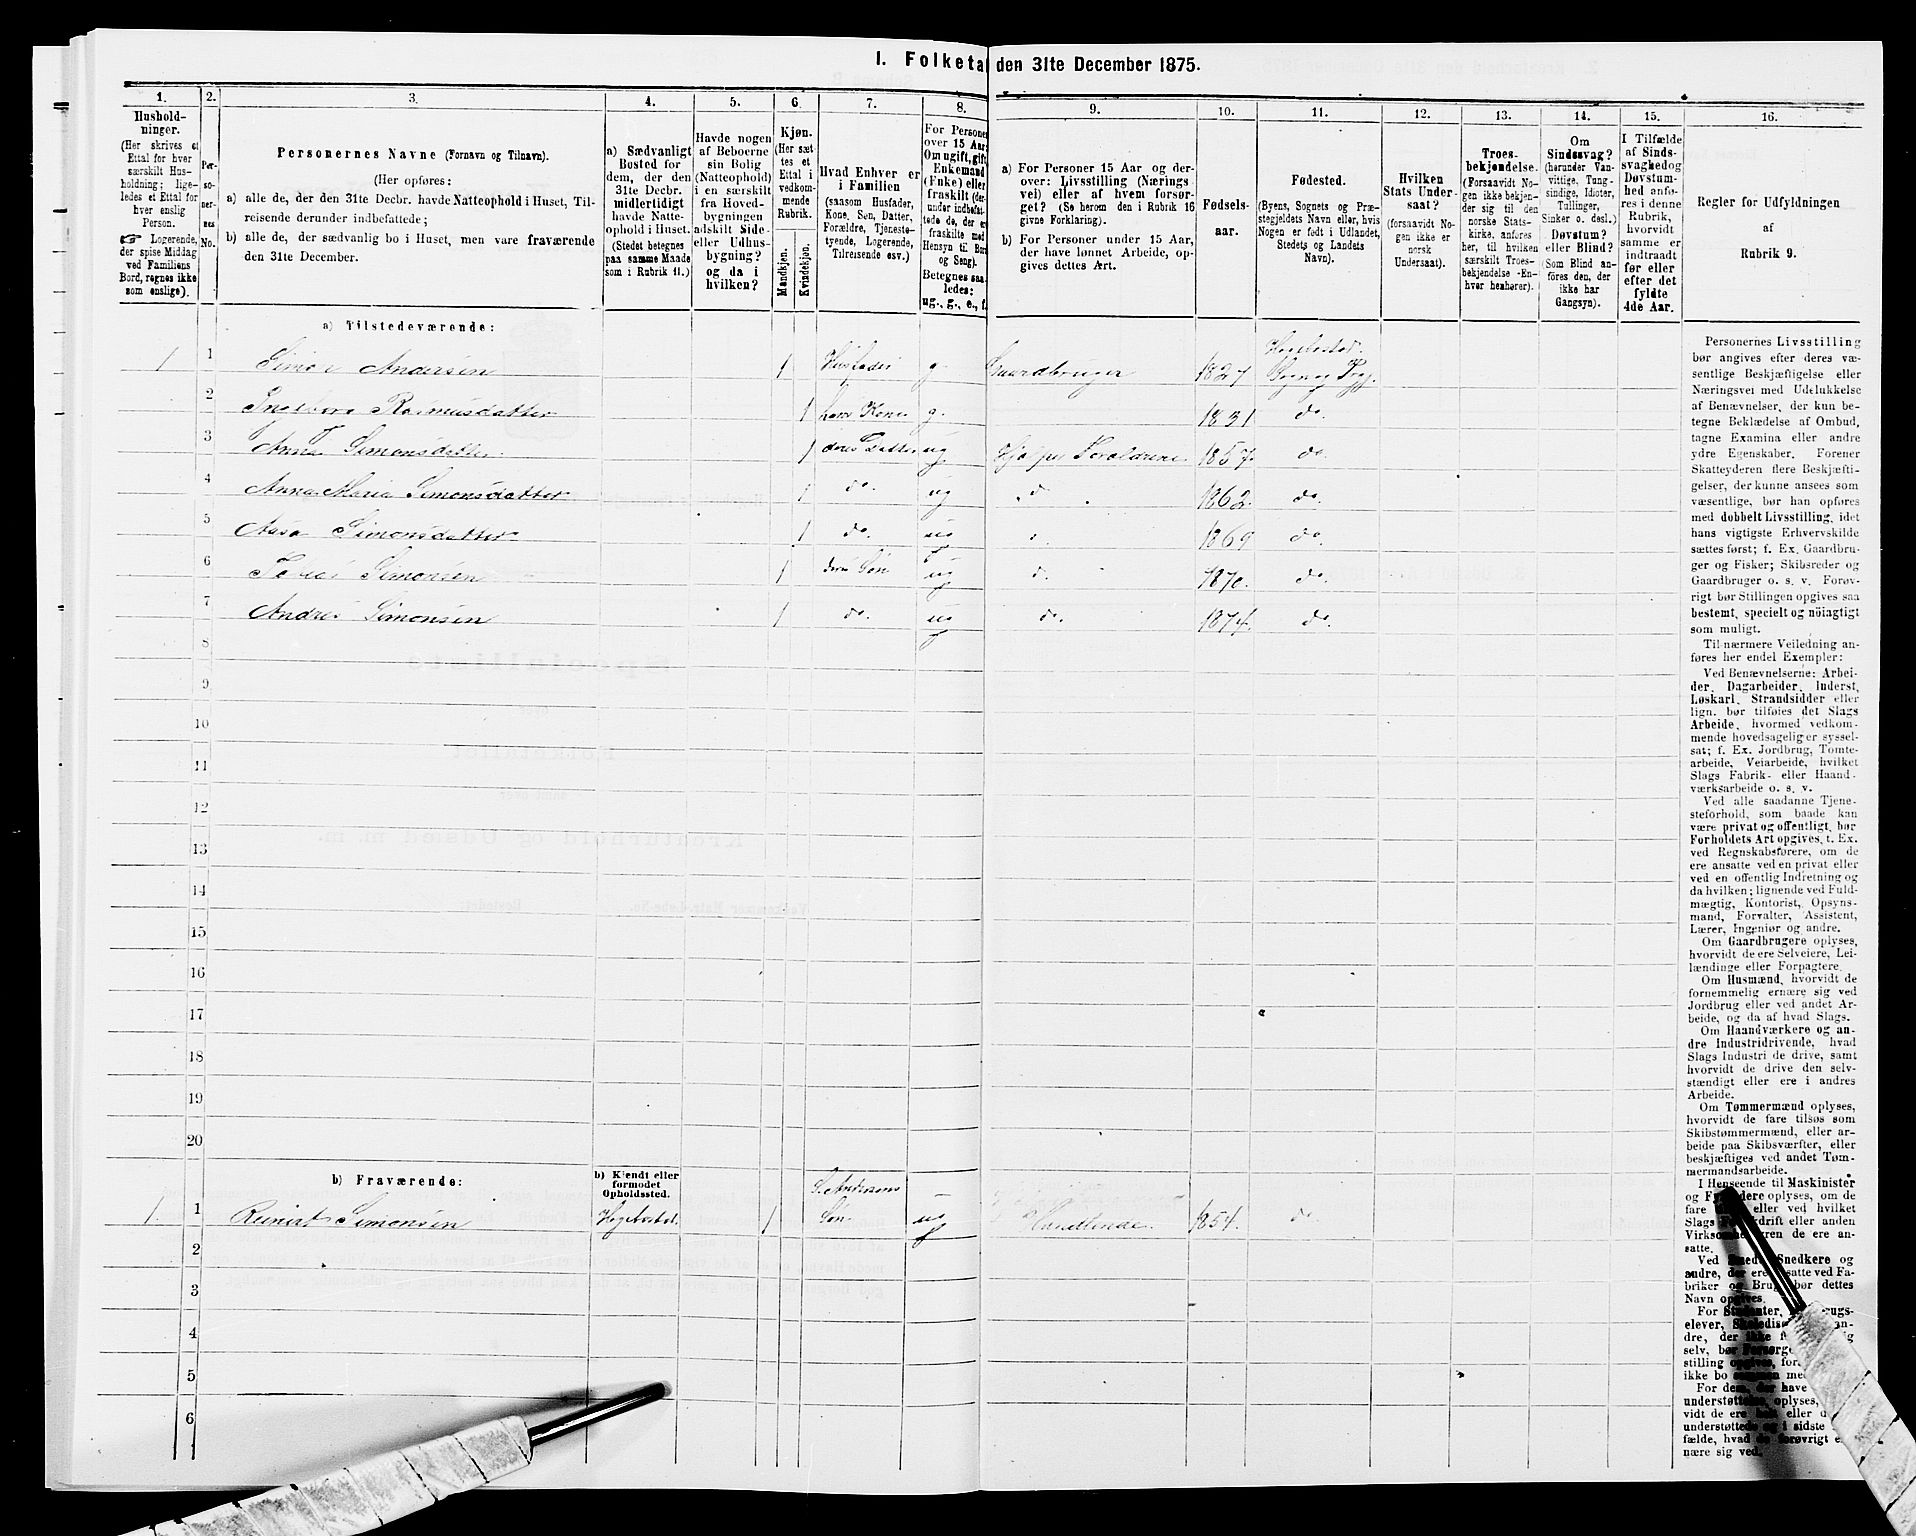 I. Folketal den 31te December 1875.
1.
Hushold-
ninger.
(Her skrives et
Ettal for hver
særskilt Hus-
holdning; lige-
ledes et Ettal for
hver enslig
Person.
☞ Logerende,
der spise Middag
ved Familiens
Bord, regnes ikke
som enslige).
2.
Per-
so-
ner-
nes
No.
3.
Personernes Navne (Fornavn og Tilnavn).
(Her opføres:
a) alle de, der den 31te Decbr. havde Natteophold i Huset, Til-
reisende derunder indbefattede;
b) alle de, der sædvanlig bo i Huset, men vare fraværende
den 31te December.
4.
a) Sædvanligt
Bosted for
dem, der den
31te Decbr.
midlertidigt
havde Natte-
ophold i Huset.
(Stedet betegnes
paa samme Maade
som i Rubrik 11.)
5.
Havde nogen
af Beboerne
sin Bolig
(Natteophold)
i en særskilt
fra Hoved-
bygningen
adskilt Side-
eller Udhus-
bygning?
og da i
hvilken?
6.
Kjøn.
(Her sæt-
tes et
Ettal i
vedkom-
mende
Rubrik.
Mandkjøn.
Kvindekjøn.
7.
Hvad Enhver er
i Familien
(saasom Husfader,
Kone, Søn, Datter,
Forældre, Tjeneste-
tyende, Logerende,
Tilreisende osv.).
8.
For Personer
over 15 Aar:
Om ugift, gift,
Enkemand
(Enke) eller
fraskilt (der-
under indbefat-
tede de, der ere
fraskilte med
Hensyn til Bord
og Seng).
Betegnes saa-
ledes:
ug., g., e., f.
9.
a) For Personer 15 Aar og der-
over: Livsstilling (Nærings-
vei) eller af hvem forsør-
get? (Se herom den i Rubrik 16
givne Forklaring).
b) For Personer under 15 Aar,
der have lønnet Arbeide, op-
gives dettes Art.
10.
Fødsels-
aar.
11.
Fødested.
(Byens, Sognets og Præ-
stegjeldets Navn eller, hvis
Nogen er født i Udlandet,
Stedets og Landets
Navn).
12.
Hvilken
Stats Under-
saat?
(forsaavidt No-
gen ikke er
norsk
Undersaat).
13.
Troes-
bekjendelse.
(Forsaavidt No-
gen ikke bekjen-
der sig til den
norske Stats-
kirke, anføres
her, til hvilken
særskilt Troes-
bekjendelse En-
hver henhører).
14.
Om
Sindssvag?
(herunder Van-
vittige, Tung-
sindige, Idioter,
Tullinger,
Sinker o. desl.)
Døvstum?
eller Blind?
(Som Blind an-
føres den, der
ikke har
Gangsyn).
15.
I Tilfælde
af Sinds-
svaghed og
Døvstum-
hed anfø-
res i denne
Rubrik,
hvorvidt
samme er
indtraadt
før eller
efter det
fyldte
4de Aar.
16.
Regler for Udfyldningen
af
Rubrik 9.
a) Tilstedeværende:
1 1 Simon Andersen 1 Husfader g. Gaardbruger 1827 Hegebostad Sogn og Prgj.
2 Ingeborg Rasmusdatter 1 hans Kone g. 1831 do
3 Anna Simonsdatter 1 deres Datter ug Hjælper Forældrene 1857. do
4 Anna Maria Simonsdatter 1 do. ug d. 1862. do
5 Aasa Simonsdatter 1 do. ug d. 1869 do.
6 Tobias Simonsen 1 deres Søn ug d. 1870. do.
7 Andreas Simonsen 1 do. ug do. 1874. do.
8
9
10
11
12
13
14
15
16
17
18
19
20
b) Fraværende:
b) Kjendt eller
formodet
Opholdssted.
1 1 Reinert Simonsen Hegebostad 1 S. Andersens Søn ug Handlende. 1854. do
2
3
4
5
6
Personernes Livsstilling
bør angives efter deres væ-
sentlige Beskjæftigelse eller
Næringsvei med Udelukkelse
af Benævnelser, der kun be-
tegne Beklædelse af Ombud,
tagne Examina eller andre
ydre Egenskaber. Forener
Skatteyderen flere Beskjæfti-
gelser, der kunne ansees som
væsentlige, bør han opføres
med dobbelt Livsstilling, idet
hans vigtigste Erhvervskilde
sættes først; f. Ex. Gaardbru-
ger og Fisker; Skibsreder og
Gaardbruger o. s. v. Forøv-
rigt bør Stillingen opgives saa
bestemt, specielt og nöiagtigt
som muligt.
Til nærmere Veiledning an-
føres her endel Exempler:
Ved Benævnelserne: Arbei-
der, Dagarbeider, Inderst,
Løskarl, Strandsidder eller
lign. bør tilføies det Slags
Arbeide, hvormed vedkom-
mende hovedsagelig er syssel-
sat; f. Ex. Jordbrug, Tomte-
arbeide, Veiarbeide, hvilket
Slags Fabrik- eller Haand-
værksarbeide o. s. v.
Ved alle saadanne Tjene-
steforhold, som baade kan
være privat og offentligt, bør
Forholdets Art opgives, t. Ex.
ved Regnskabsførere, om de
ere ansatte ved en privat eller
ved en offentlig Indretning og
da hvilken; lignende ved Fuld-
mægtig, Kontorist, Opsyns-
mand, Forvalter, Assistent,
Lærer, Ingeniør og andre.
Om Gaardbrugere oplyses,
hvorvidt de ere Selveiere, Lei-
lændinge eller Forpagtere.
Om Husmænd, hvorvidt de
fornemmelig ernære sig ved
Jordbrug eller ved andet Ar-
beide, og da af hvad Slags.
Om Haandværkere og an-
dre Industridrivende, hvad
Slags Industri de drive, samt
hvorvidt de drive den selv-
stændigt eller ere i andres
Arbeide.
Om Tømmermænd oplyses,
hvorvidt de fare tilsøs som
Skibstømmermænd, eller ar-
beide paa Skibsværfter, eller
beskjæftiges ved andet Tøm-
mermandsarbeide.
I Henseende til Maskinister
og Fyrbødere oplyses, om de
fare eller ved hvilket
Slags drift eller anden
Virksomhed ere an-
satte.
Ved Smede, Snedkere og
andre, der ere ansatte ved Fa-
briker og Brug, bør dettes
Navn opgives.
For Studenter, brugs-
elever, an-
dre, der ikke sig
selv, bør Forsørgerens
stilling opgives,
ikke bo sammen med
For dem, der have
understøttelse, oplyses,
vidt de ere eller
understøttede og i sidste
fælde, hvad de forøvrigt er-
nære sig ved.